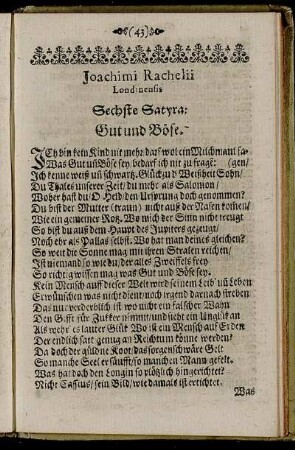 (43)
Joachimi Rachelii
Londinensis
Sechste Satyra:
Gut und Böse.
ICh bin kein Kind nit mehr daß wol ein Milchmaul sa-
Was Gut uñ Böse sey bedarf ich nit zu frage: (gen/
Ich kenne weiß uñ schwartz. Glück zu d' Weißheit Sohn/
Du Thales unserer Zeit/ du mehr als Salomon/
Woher hast du O Held den Ursprung doch genommen?
Du bist der Mutter (traun) nicht auß der Nasen kom̃en/
Wie ein gemeiner Rotz. Wo mich der Sinn nicht treugt
So bist du auß dem Haupt des Jupiters gezeugt/
Noch ehr als Pallas selbst. Wo hat man deines gleichen?
So weit die Sonne mag mit ihren Stralen reichen/
Ist niemand so wie du/ der alles Zweiffels frey
So richtig wissen mag was Gut und Böse sey.
Kein Mensch auff dieser Welt wird seinem Leib uñ Leben
Erwünschen was nicht dient/ noch irgend darnach streben
Das nur verderblich ist wo nicht ein falscher Wahn
Den Gifft für Zukker nimmt/ und sieht ein Unglük an
Als wehr es lauter Glük Wo ist ein Mensch auf Erden
Der endlich satt genug an Reichtum könne werden?
Da doch der güldne Koot/ das sorgenschwäre Gelt
So manche Seel ersäufft/ so manchen Mann gefelt.
Was hat doch den Longin so plötzlich hingerichtet?
Nicht Cassius/ sein Bild/ wie damals ist ertichtet.
Was